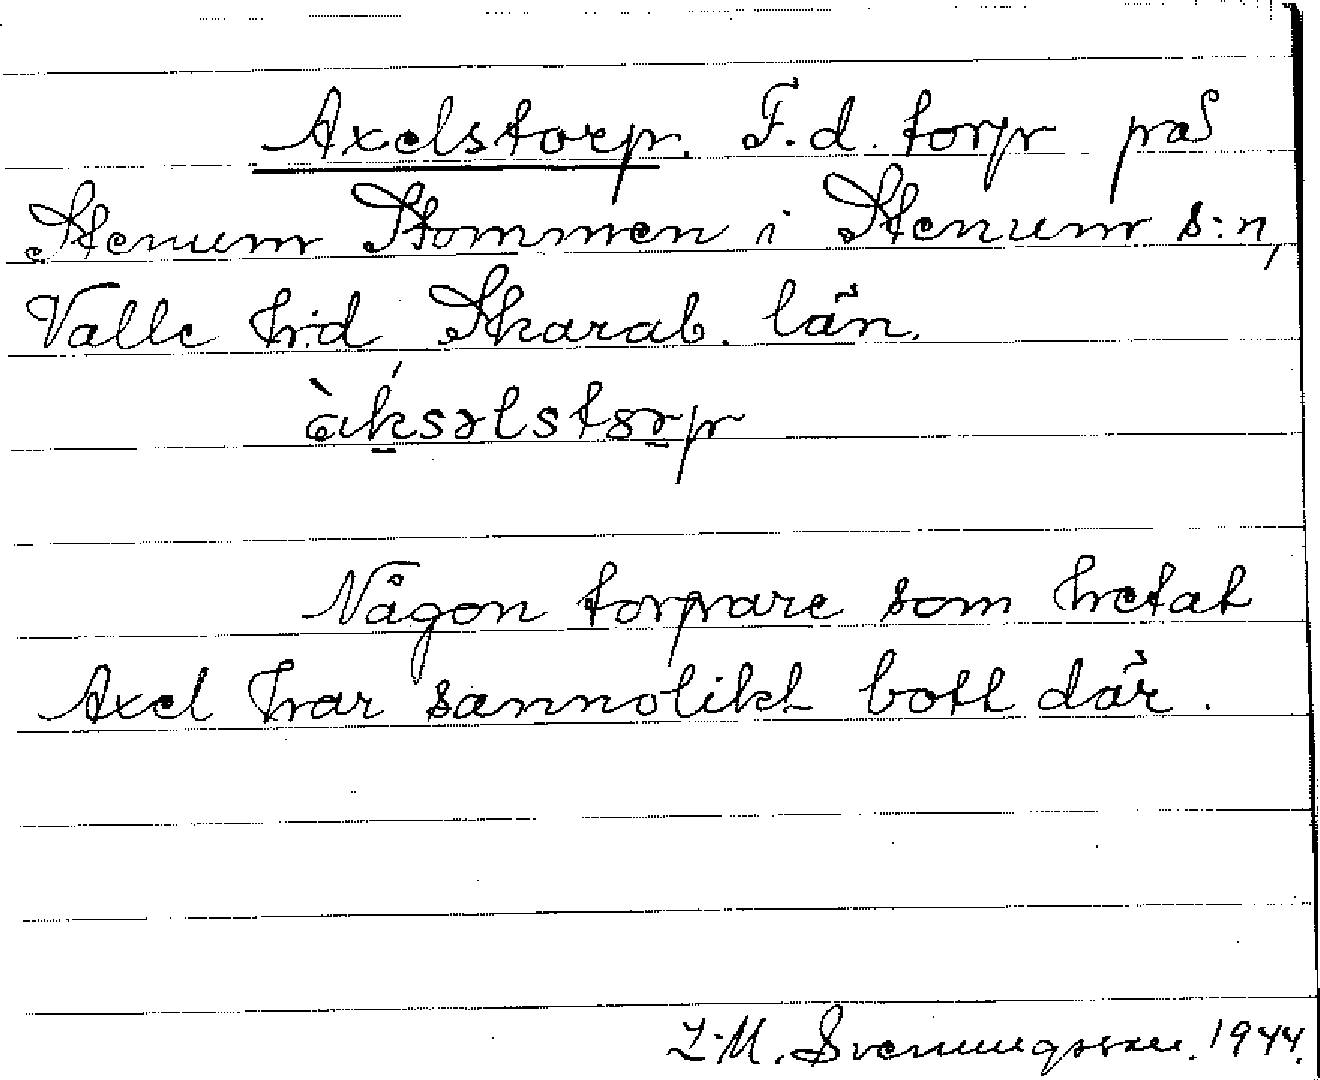 Axelstorp. F.d. torp på
Stenum Stommen i Stenum s:n,
Valle h:d Skarab. län.
àḱsəlstorp
Någon torpare som hetat
Axel har sannolikt bott där.
L.M. Svenungsson. 1944.